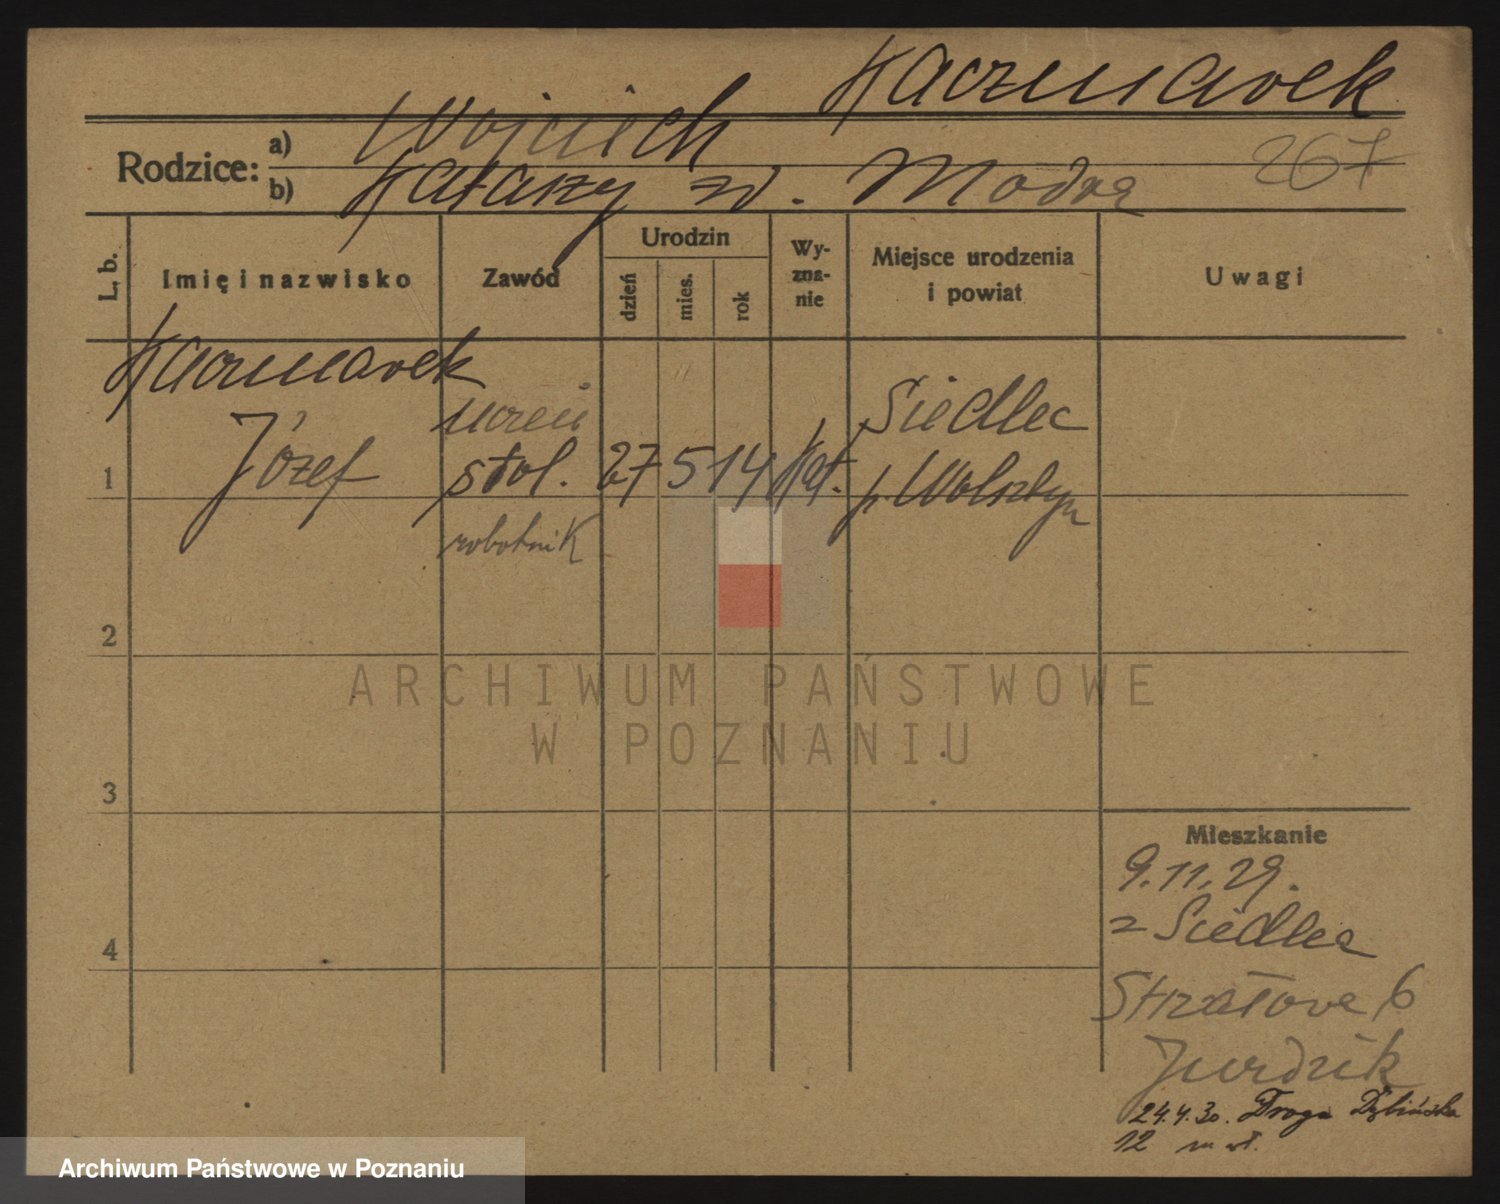 Kaczmarek
Rodzice: a) Wojciech
b) Katarzy zd. Modra 267
L. b.
Imię i nazwisko
Zawód
Urodzin
dzień
mies.
rok
Wy-
zna-
nie
Miejsce urodzenia
i powiat
Uwagi
Kaczmarek
Józef
uczeń
stol.
robotnik
27 5 14 Kat.
Siedlec
p. Wolsztyn
1
2
3
4
ARCHIWUM PAŃSTWOWE
W POZNANIU
Mieszkanie
9.11.29.
z Siedlca
Strzałowa 6
Jurdzik
24.4.30. Droga Dębińska
12 m wł.
Archiwum Państwowe w Poznaniu